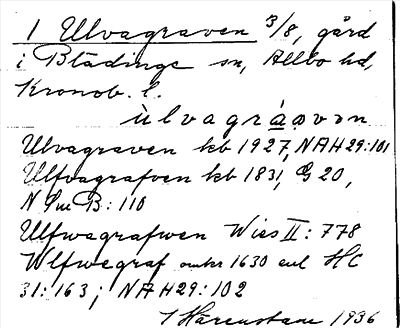 1 Ulvagraven 3/8, gård
i Blädinge sn, Allbo hd,
Kronob. l.
ùlvagráꝍvən
Ulvagraven kb 1927, NAH 29:101
Ulfvagrafven kb 1831, G 20,
N Sm B: 110
Ulfwagrafwen Wies II: 778
Wlfwegraf omkr 1630 enl HC
31:163; NAH 29:102
I Härenstam 1936